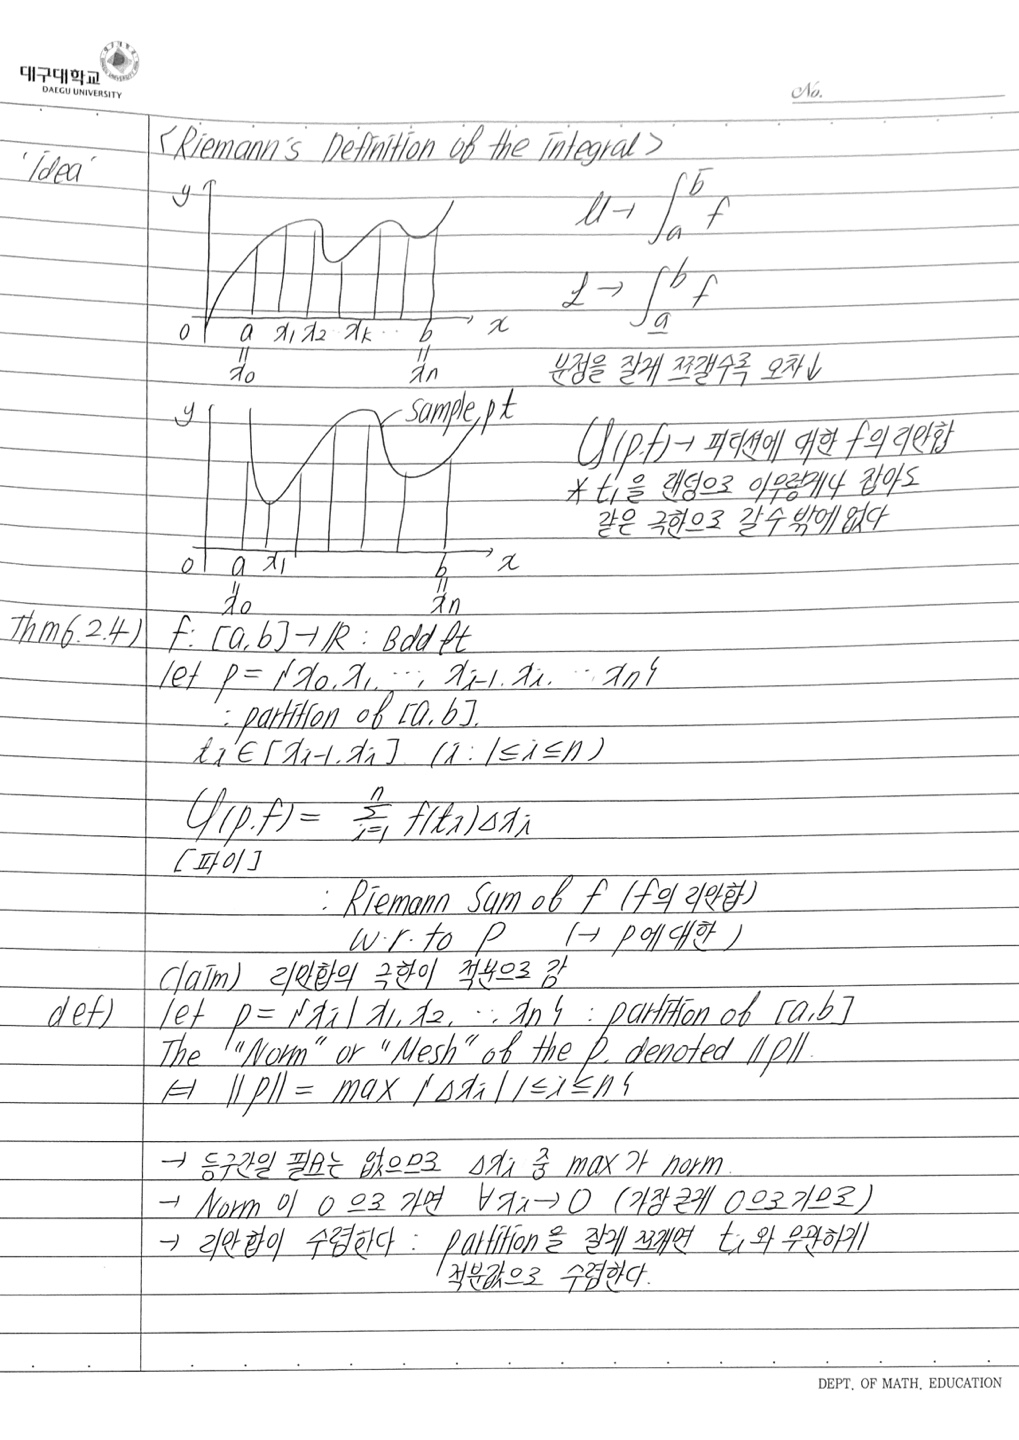 대구대학교
DAEGU UNIVERSITY
No.
<Riemann's Definition of the integral>
'idea'
y
0 a x₁ x₂ xₖ ... b x
= =
x₀ xₙ
U → ∫ₐ^b̄ f
L → ∫_a̲^b f
분정을 잘게 쪼갤수록 오차↓
y
sample pt
0 a x₁ b x
= =
x₀ xₙ
φ(p.f) → 파티션에 대한 f의 리만합
* tᵢ을 랜덤으로 아무렇게나 잡아도
같은 극한으로 갈 수 밖에 없다
Thm6.2.4) f: [a,b] → ℝ : Bdd ft
let p = {x₀, x₁, ..., xᵢ₋₁, xᵢ, ... xₙ}
: partition of [a,b].
tᵢ ∈ [xᵢ₋₁, xᵢ] (i : 1≤i≤n)
φ(p.f) = Σᵢ₌₁ⁿ f(tᵢ)Δxᵢ
[파이]
: Riemann Sum of f (f의 리만합)
w.r.to P (→ p에 대한)
claim) 리만합의 극한이 적분으로 감
def) let p = {xᵢ | x₁, x₂, ..., xₙ} : partition of [a,b]
The "Norm" or "Mesh" of the p. denoted ||p||.
⊨ ||p|| = max {Δxᵢ | 1≤i≤n}
→ 등구간일 필요는 없으므로 Δxᵢ 중 max가 norm.
→ Norm이 0으로 가면 ∀xᵢ→0 (가장 큰게 0으로 가므로)
→ 리만합이 수렴한다 : partition을 잘게 쪼개면 tᵢ와 무관하게
적분값으로 수렴한다.
DEPT. OF MATH. EDUCATION